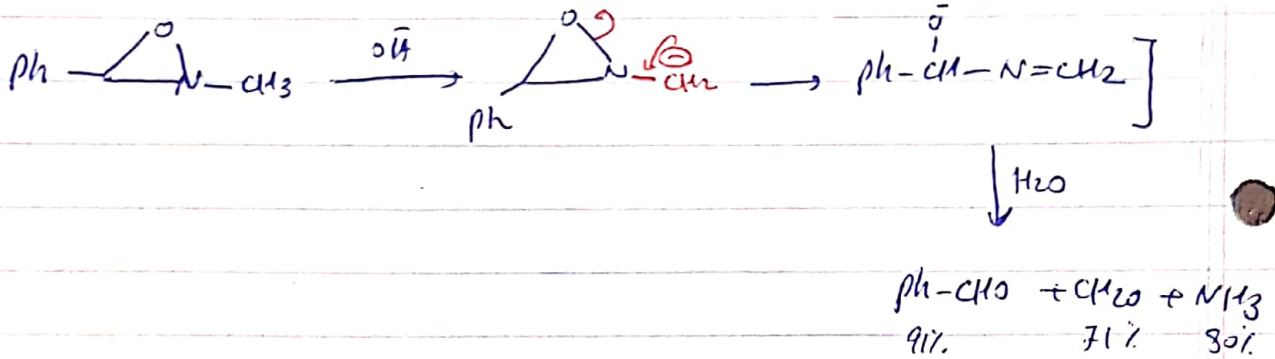 Ph O N-CH3 OH̄ O N-CH2 Ph Ph-CH-N=CH2 ]
Ō
H2O
Ph-CHO + CH2O + NH3
91% 71% 80%